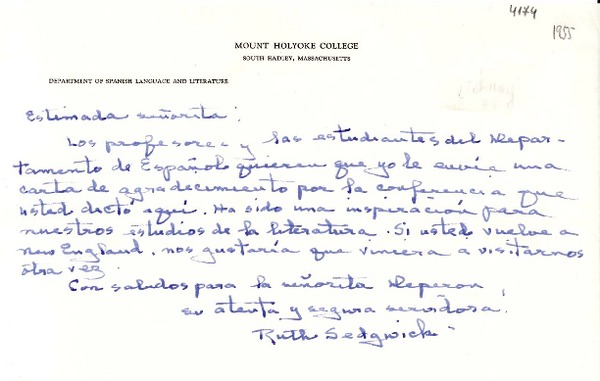 4174
1955
MOUNT HOLYOKE COLLEGE
SOUTH HADLEY, MASSACHUSETTS
DEPARTMENT OF SPANISH LANGUAGE AND LITERATURE
Estimada señorita:
Los profesores y las estudiantes del Depar-
tamento de Español quieren que yo le envíe una
carta de agradecimiento por la conferencia que
usted dictó aquí. Ha sido una inspiración para
nuestros estudios de la literatura. Si usted vuelve a
New England, nos gustaría que viniera a visitarnos
otra vez.
Con saludos para la señorita
su atenta y segura servidora,
Ruth Sedgwick